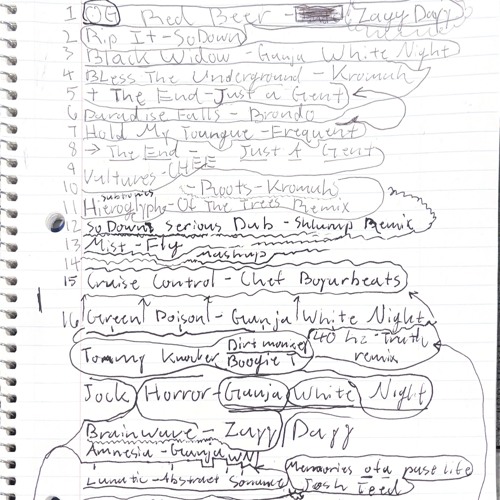 1 OG Red Beer - (Zayy Dayy
2 Rip It - SoDown
3 Black Widow - Ganja White Night
4 Bless The Underground - Kromuh
5 + The End - Just a Gent
6 Paradise Falls - Brondo
7 Hold My Toungue - Frequent
8 → The End - Just A Gent
9 Vultures - CHEE
10 - Roots - Kromuh
11 Hieroglyphs - Of The Trees Remix
subtronics
12 SoDown Serious Dub - Shlump Remix
13 Mist - Fly
mashup
14
15 Cruise Control - Chef Boyurbeats
16 Green Poison - Ganja White Night
Tommy Knocker Dirt monkey Boogie T 40 hz - Truth remix
Jock Horror - Ganja White Night
Brainwave - Zayy Dayy
Amnesia - Ganja WN
Lunatic - Abstract Sonance
Memories of a past life
Josh Teed